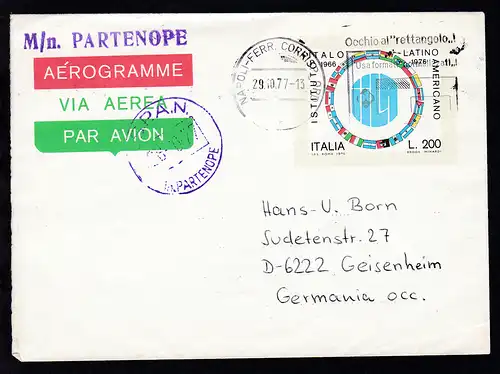 M/n. PARTENOPE
AÉROGRAMME
VIA AEREA
PAR AVION
PARTENOPE
NAPOLI-FERR. CORRISP.
29.10.77-13
Occhio al "rettangolo"!
ISTITUTO ITALO LATINO AMERICANO
1966 1976
ITALIA L. 200
Hans-U. Born
Sudetenstr. 27
D-6222 Geisenheim
Germania occ.